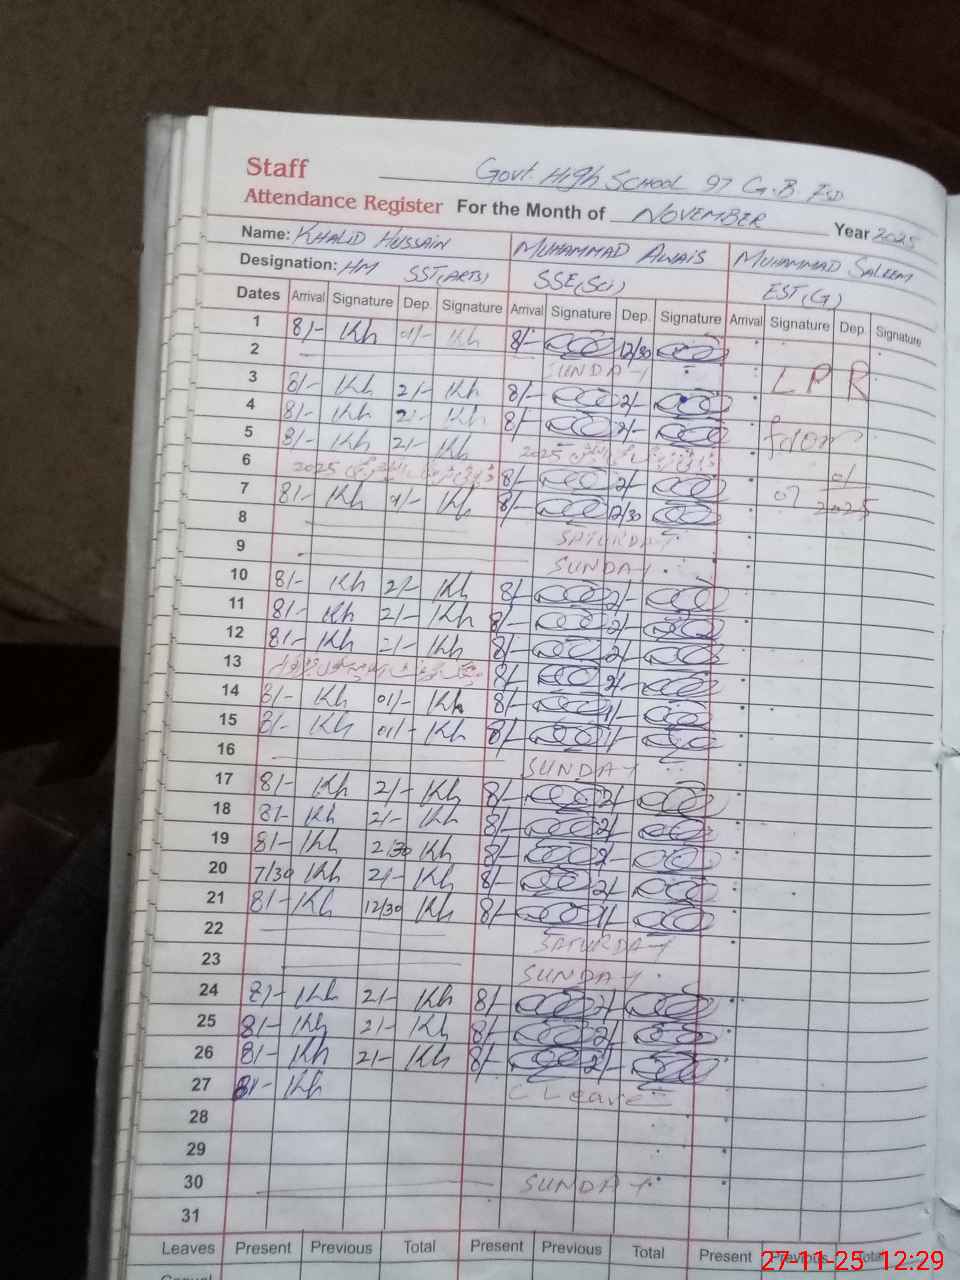 Staff Govt. High School 97 G.B. Fsd
Attendance Register For the Month of NOVEMBER Year 2025
Name: KHALID HUSSAIN MUHAMMAD AWAIS MUHAMMAD SALEEM
Designation: HM SST(ARTS) SSE(Sci) EST(G)
Dates Arrival Signature Dep. Signature Arrival Signature Dep. Signature Arrival Signature Dep. Signature
1 8/- Kh 01/- Kh 8/- 12/30
2 SUNDAY LPR
3 8/- Kh 2/- Kh 8/- 2/-
4 8/- Kh 2/- Kh 8/- 2/-
5 8/- Kh 2/- Kh 2025
6 2025 8/- 2/- 01
7 8/- Kh 01/- Kh 8/- 12/30 07 2025
8 SATURDAY
9 SUNDAY
10 8/- Kh 2/- Kh 8/- 2/-
11 8/- Kh 2/- Kh 8/- 2/-
12 8/- Kh 2/- Kh 8/- 2/-
13 8/- 2/-
14 8/- Kh 01/- Kh 8/- 1/-
15 8/- Kh 01/- Kh 8/- 1/-
16 SUNDAY
17 8/- Kh 2/- Kh 8/- 2/-
18 8/- Kh 2/- Kh 8/- 2/-
19 8/- Kh 2/30 Kh 8/- 2/-
20 7/30 Kh 2/- Kh 8/- 2/-
21 8/- Kh 12/30 Kh 8/- 1/-
22 SATURDAY
23 SUNDAY
24 8/- Kh 2/- Kh 8/- 2/-
25 8/- Kh 2/- Kh 8/- 2/-
26 8/- Kh 2/- Kh 8/- 2/-
27 8/- Kh C Leave
28
29
30 SUNDAY
31
Leaves Present Previous Total Present Previous Total Present Previous Total
27-11-25 12:29